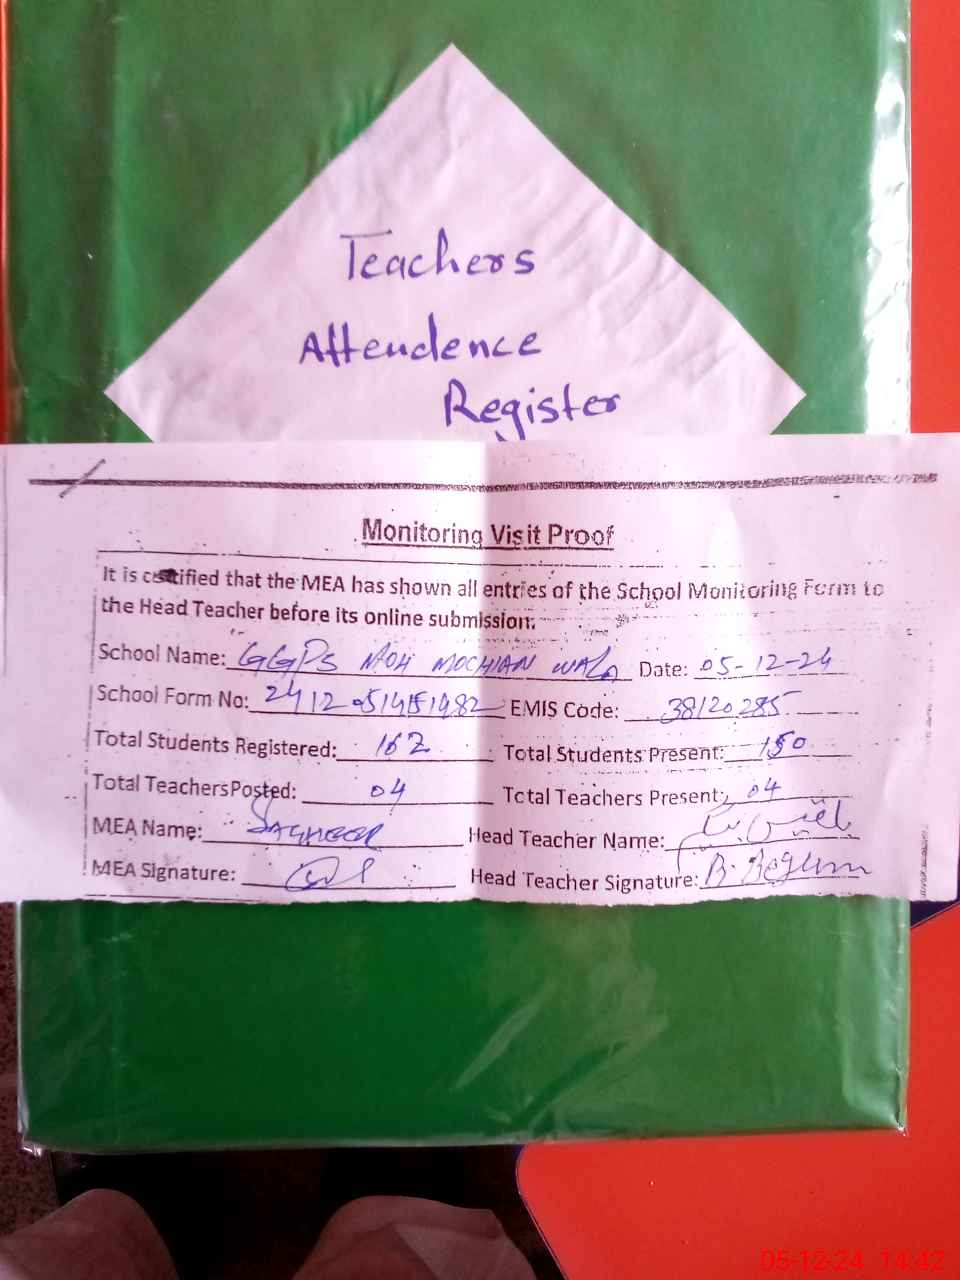 Teachers
Attendence
Register
Monitoring Visit Proof
It is certified that the MEA has shown all entries of the School Monitoring Form to
the Head Teacher before its online submission.
School Name: GGPS MOH MOCHIAN WALA Date: 05-12-24
School Form No: EMIS Code: 38120285
Total Students Registered: 162 Total Students Present: 150
Total Teachers Posted: 04 Total Teachers Present: 04
MEA Name: SAGHEER Head Teacher Name:
MEA Signature: Head Teacher Signature: B. Begum
05-12-24 14:42